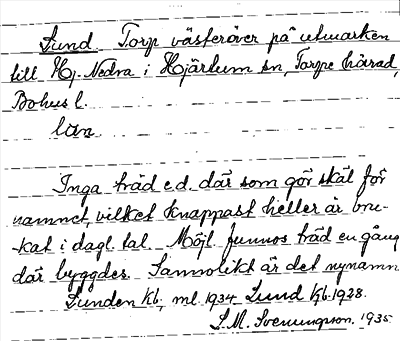 Lund. Torp västeröver på utmarken
till Hj. Nedra i Hjärtum sn, Torpe härad,
Bohus l.
län
Inga träd e.d. där som gör skäl för
namnet, vilket knappast heller är bru-
kat i dagl. tal. Möjl. funnos träd en gång
där byggdes. Sannolikt är det nynamn
Lunden kb, ml. 1934 Lund kb. 1928.
S.M. Svenungson. 1935